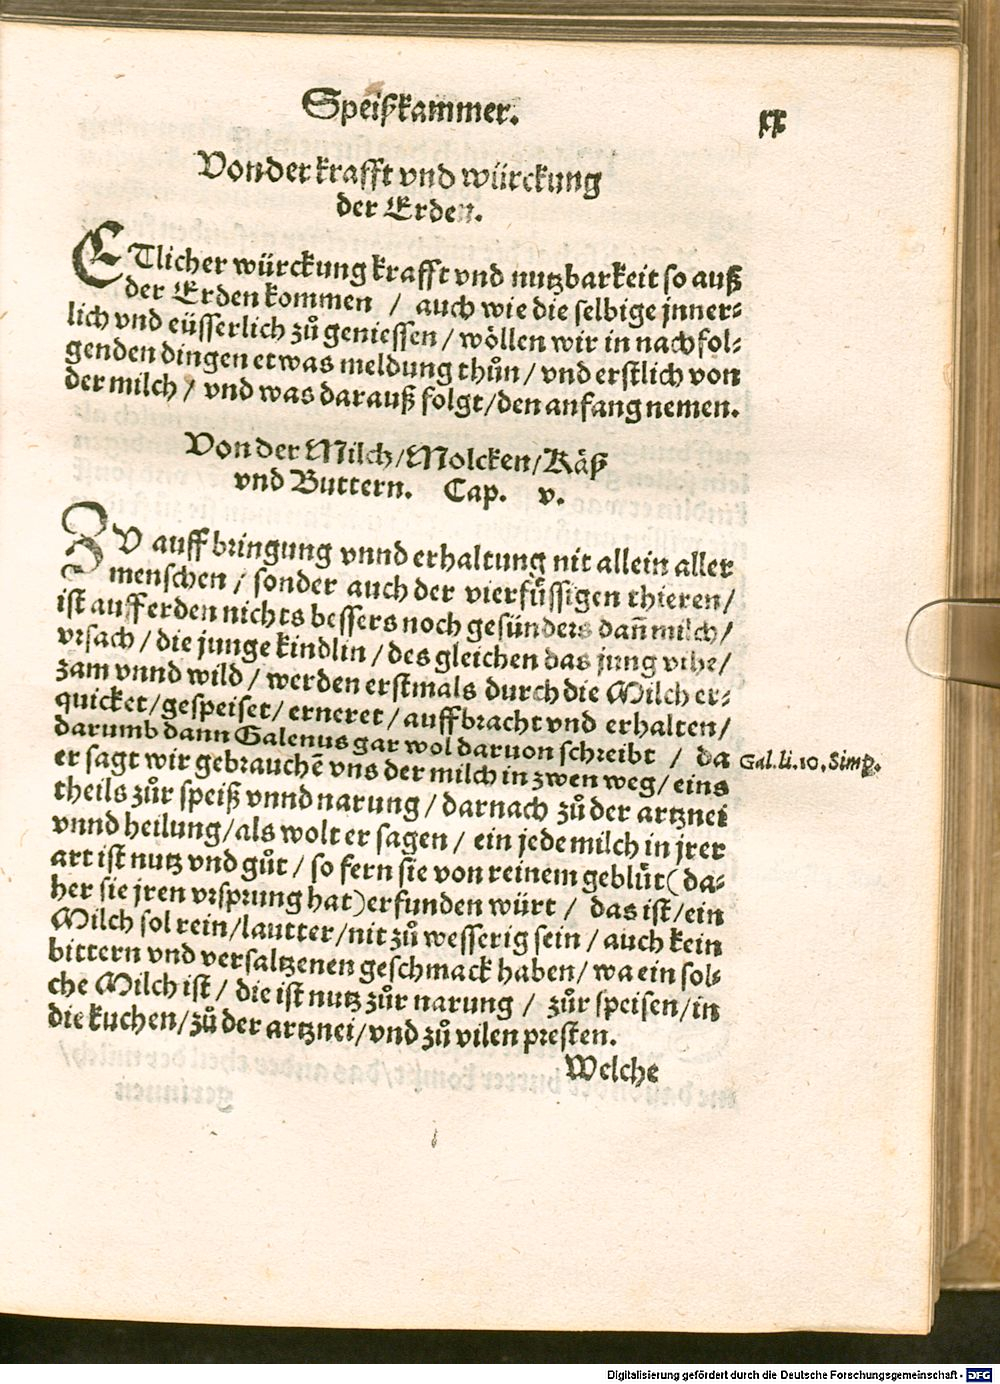 Speißkammer.
xx
Von der krafft vnd würckung
der Erden.
ETlicher würckung krafft vnd nutzbarkeit so auß
der Erden kommen / auch wie die selbige jnner-
lich vnd eüsserlich zů geniessen / wöllen wir in nachfol-
genden dingen etwas meldung thůn / vnd erstlich von
der milch / vnd was darauß folgt / den anfang nemen.
Von der Milch / Molcken / Käß
vnd Buttern. Cap. v.
ZV auff bringung vnnd erhaltung nit allein aller
menschen / sonder auch der vierfüssigen thieren /
ist auff erden nichts bessers noch gesünders dañ milch /
vrsach / die junge kindlin / des gleichen das jung vihe /
zam vnnd wild / werden erstmals durch die Milch er-
quicket / gespeiset / erneret / auffbracht vnd erhalten /
darumb dann Galenus gar wol daruon schreibt / da
Gal. li. 10. Simp.
er sagt wir gebrauchē vns der milch in zwen weg / eins
theils zůr speiß vnnd narung / darnach zů der artznei
vnnd heilung / als wolt er sagen / ein jede milch in jrer
art ist nutz vnd gůt / so fern sie von reinem geblüt (da-
her sie jren vrsprung hat) erfunden würt / das ist / ein
Milch sol rein / lautter / nit zů wesserig sein / auch kein
bittern vnd versaltzenen geschmack haben / wa ein sol-
che Milch ist / die ist nutz zůr narung / zůr speisen / in
die kuchen / zů der artznei / vnd zů vilen presten.
Welche
Digitalisierung gefördert durch die Deutsche Forschungsgemeinschaft - DFG